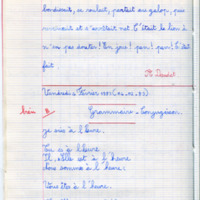 bondissait, se roulait, partait au galop, puis
revenait et s'arrêtait net. C'était le lion à
n'en pas douter! En joue! pan! pan! C'était
fait
A. Daudet
Vendredi 4 Février 1983 (04.02.83)
bien B Grammaire - Conjugaison
Je suis à l'heure.
Tu es à l'heure
Il, elle est à l'heure
Nous sommes à l'heure.
Vous êtes à l'heure.